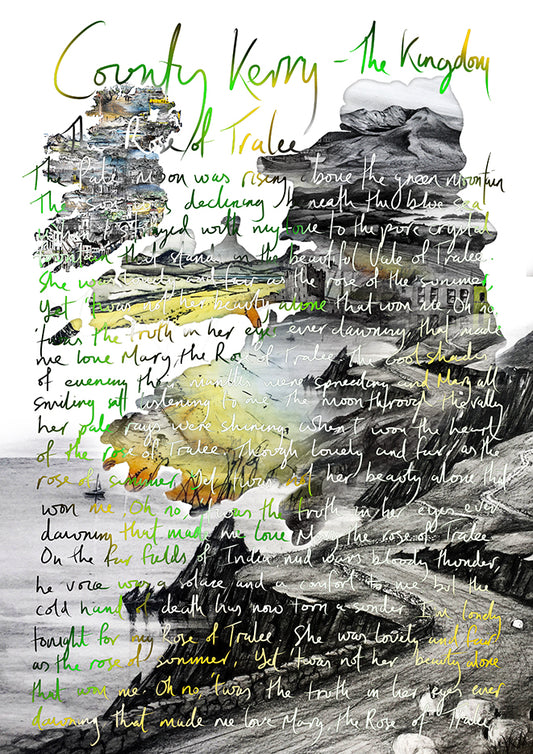 County Kerry - The Kingdom
The Rose of Tralee
The Pale moon was rising above the green mountain
The sun was declining beneath the blue sea
strayed with my love to the pure crystal
fountain that stands in the beautiful Vale of Tralee.
She was lovely and fair as the rose of the summer,
Yet 'twas not her beauty alone that won me Oh no
'twas the truth in her eyes ever dawning, that made
me love Mary, the Rose of Tralee. The cool shades
of evening their mantles were spreading and Mary all
smiling sat listening to me. The moon through the valley
her pale rays were shining when I won the heart
of the rose of Tralee. Though lovely and fair as the
rose of summer, Yet 'twas not her beauty alone that
won me. Oh no, 'twas the truth in her eyes ever
dawning that made me love Mary the rose of Tralee
On the far fields of India mid wars bloody thunder,
her voice was a solace and a comfort to me but the
cold hand of death has now torn a sunder I'm lonely
tonight for my Rose of Tralee. She was lovely and fair
as the rose of summer, Yet 'twas not her beauty alone
that won me. Oh no, 'twas the truth in her eyes ever
dawning that made me love Mary, the Rose of Tralee